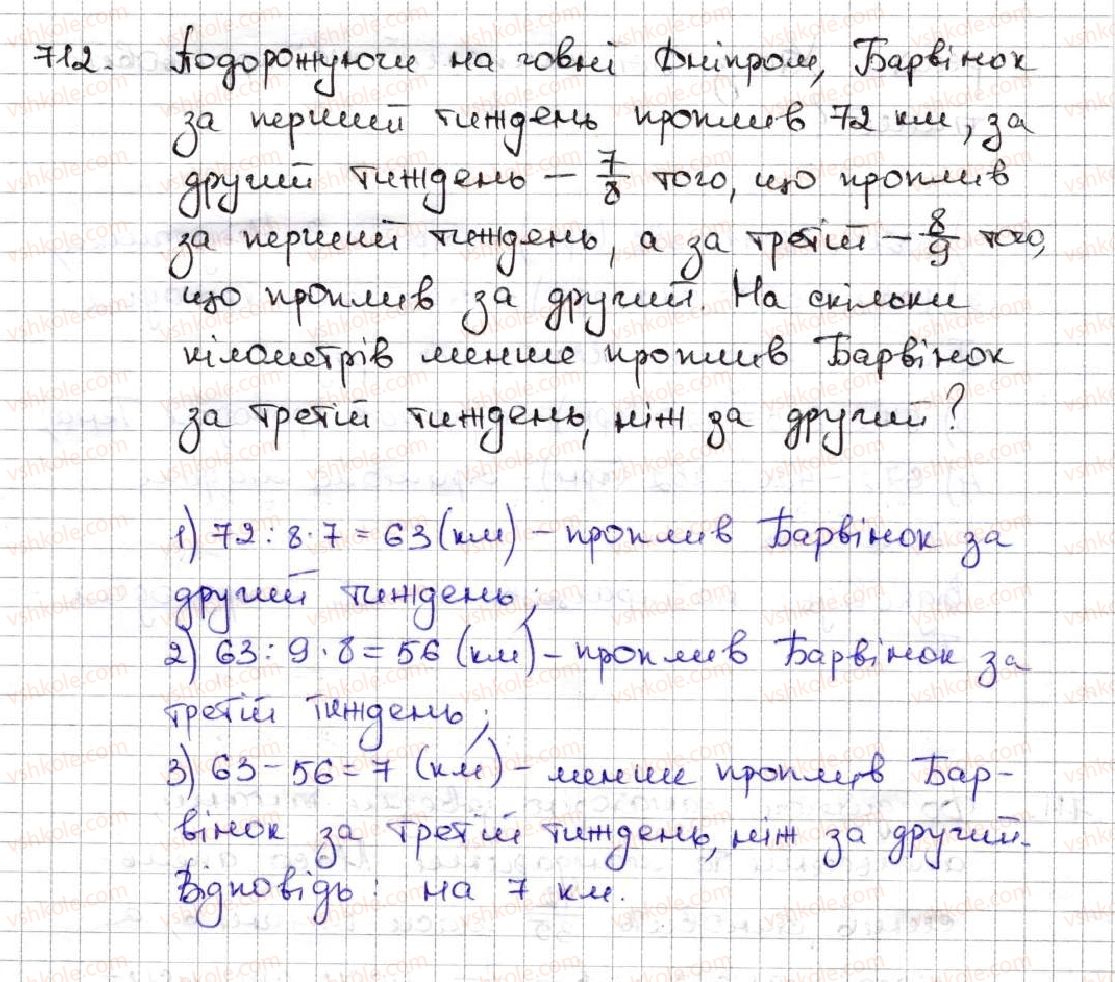 712. Подорожуючи на човні Дніпром, Барвінок
за перший тиждень проплив 72 км, за
другий тиждень – 7/8 того, що проплив
за перший тиждень, а за третій – 8/9 того,
що проплив за другий. На скільки
кілометрів менше проплив Барвінок
за третій тиждень, ніж за другий?
1) 72 : 8 · 7 = 63 (км) – проплив Барвінок за
другий тиждень;
2) 63 : 9 · 8 = 56 (км) – проплив Барвінок за
третій тиждень;
3) 63 – 56 = 7 (км) – менше проплив Бар-
вінок за третій тиждень, ніж за другий.
Відповідь: на 7 км.